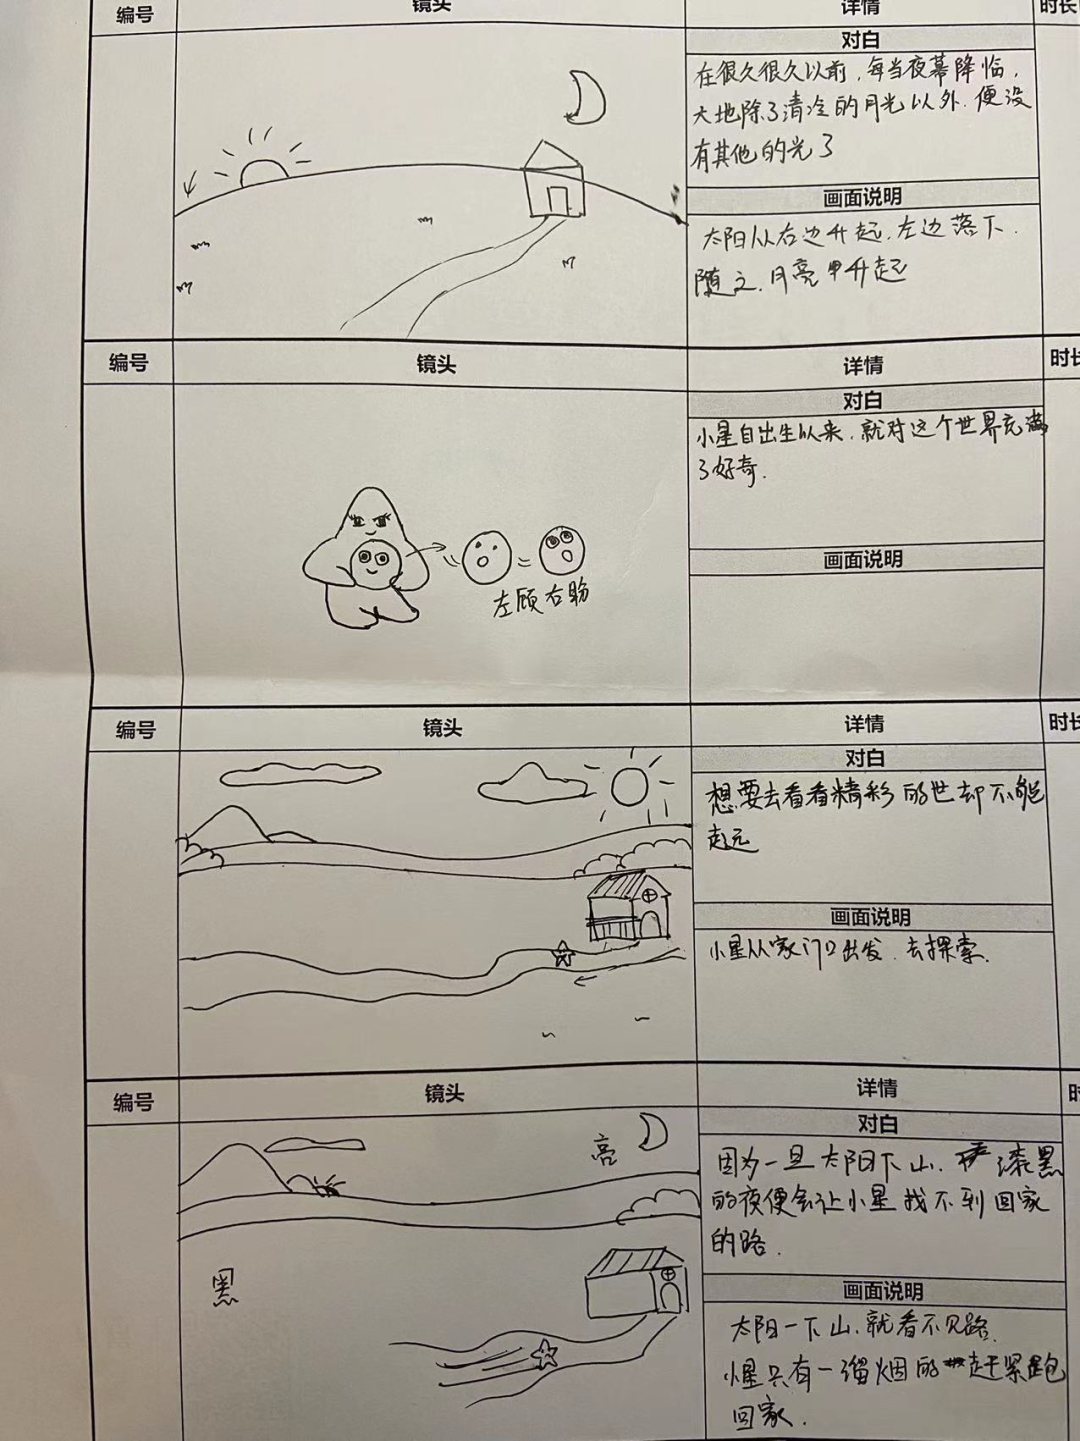 编号 镜头 详情 时长
对白
在很久很久以前，每当夜幕降临，
大地除了清冷的月光以外，便没
有其他的光了
画面说明
太阳从右边升起，左边落下，
随之，月亮升起
编号 镜头 详情 时长
对白
小星自出生以来，就对这个世界充满
了好奇．
左顾右盼
画面说明
编号 镜头 详情 时长
对白
想要去看看精彩的世却不能
走远
画面说明
小星从家门口出发，去探索．
编号 镜头 详情 时
对白
亮
因为一旦太阳下山，漆黑
的夜便会让小星找不到回家
的路．
黑
画面说明
太阳一下山，就看不见路．
小星只有一溜烟的赶紧跑
回家．